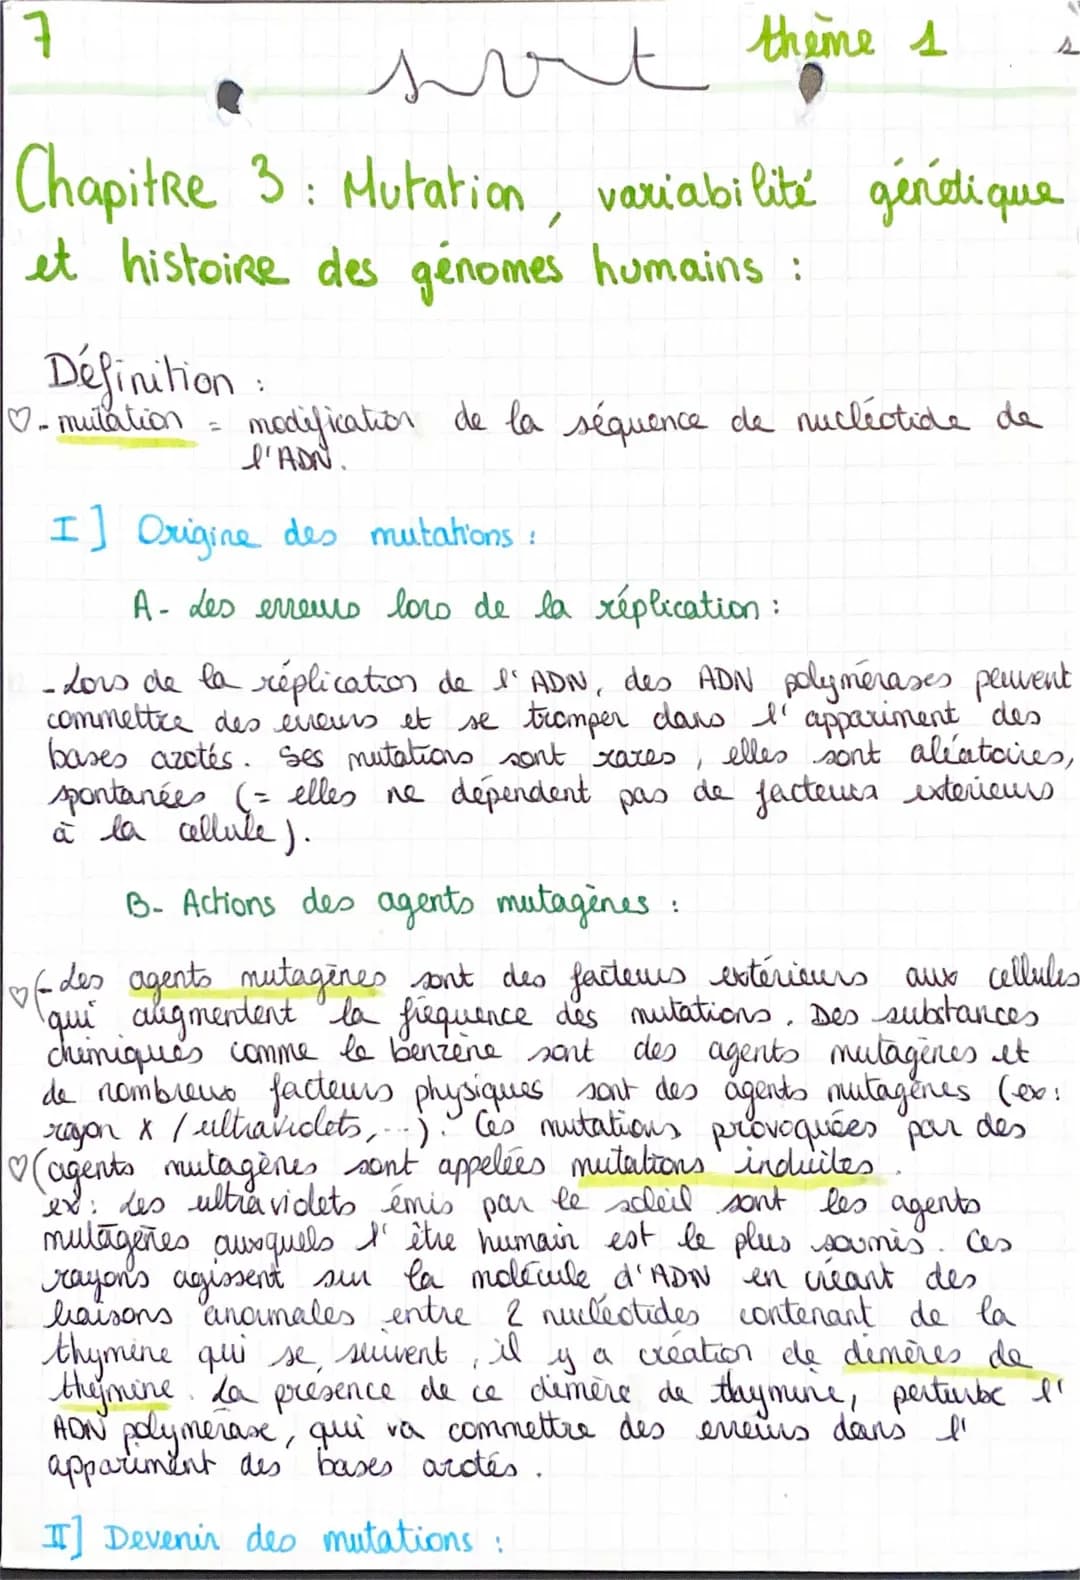 7
svt
thème 1
Chapitre 3 : Mutation, variabilité génétique
et histoire des génomes humains :
Définition :
♡ - mutation = modification de la séquence de nucléotide de
l'ADN.
I] Origine des mutations :
A - Les erreurs lors de la réplication :
- Lors de la réplication de l'ADN, des ADN polymérases peuvent
commettre des erreurs et se tromper dans l'appariment des
bases azotés. Ses mutations sont rares, elles sont aléatoires,
spontanées (= elles ne dépendent pas de facteurs exterieurs
à la cellule).
B- Actions des agents mutagènes :
♡ (- Les agents mutagènes sont des facteurs extérieurs aux cellules
qui augmentent la fréquence des mutations. Des substances
chimiques comme le benzène sont des agents mutagènes et
de nombreux facteurs physiques sont des agents mutagènes (ex:
rayon X / ultraviolets, ...). Ces mutations provoquées par des
♡ (agents mutagènes sont appelées mutations induites.
ex : Les ultraviolets émis par le soleil sont les agents
mutagènes auxquels l'être humain est le plus soumis. Ces
rayons agissent sur la molécule d'ADN en créant des
liaisons anormales entre 2 nucléotides contenant de la
thymine qui se suivent, il y a création de dimères de
thymine. La présence de ce dimère de thaymine, perturbe l'
ADN polymérase, qui va commettre des erreurs dans l'
appariment des bases azotés.
II] Devenir des mutations :